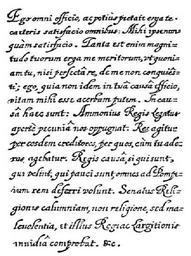 Ego omni officio, ac potius pietate erga te,
cæteris satisfacio omnibus: Mihi ipse nun-
quam satisfacio. Tanta est enim magni-
tudo tuorum erga me meritorum, vt quoni-
am tu, nisi perfecta re, de me non conquies-
ti; ego, quia non idem in tua causa efficio,
vitam mihi esse acerbam putem. In cau-
sa hæc sunt: Ammonius Regis legatus
aperte pecunia nos oppugnat: Res agitur
per eosdem creditores, per quos, cum tu ade-
ras, agebatur. Regis causa, si qui sunt,
qui velint, qui pauci sunt, omnes ad Pompe-
ium rem deferri volunt. Senatus Reli-
gionis calumniam, non religione, sed ma-
leuolentia, et illius Regiæ Largitionis
inuidia comprobat. &c.